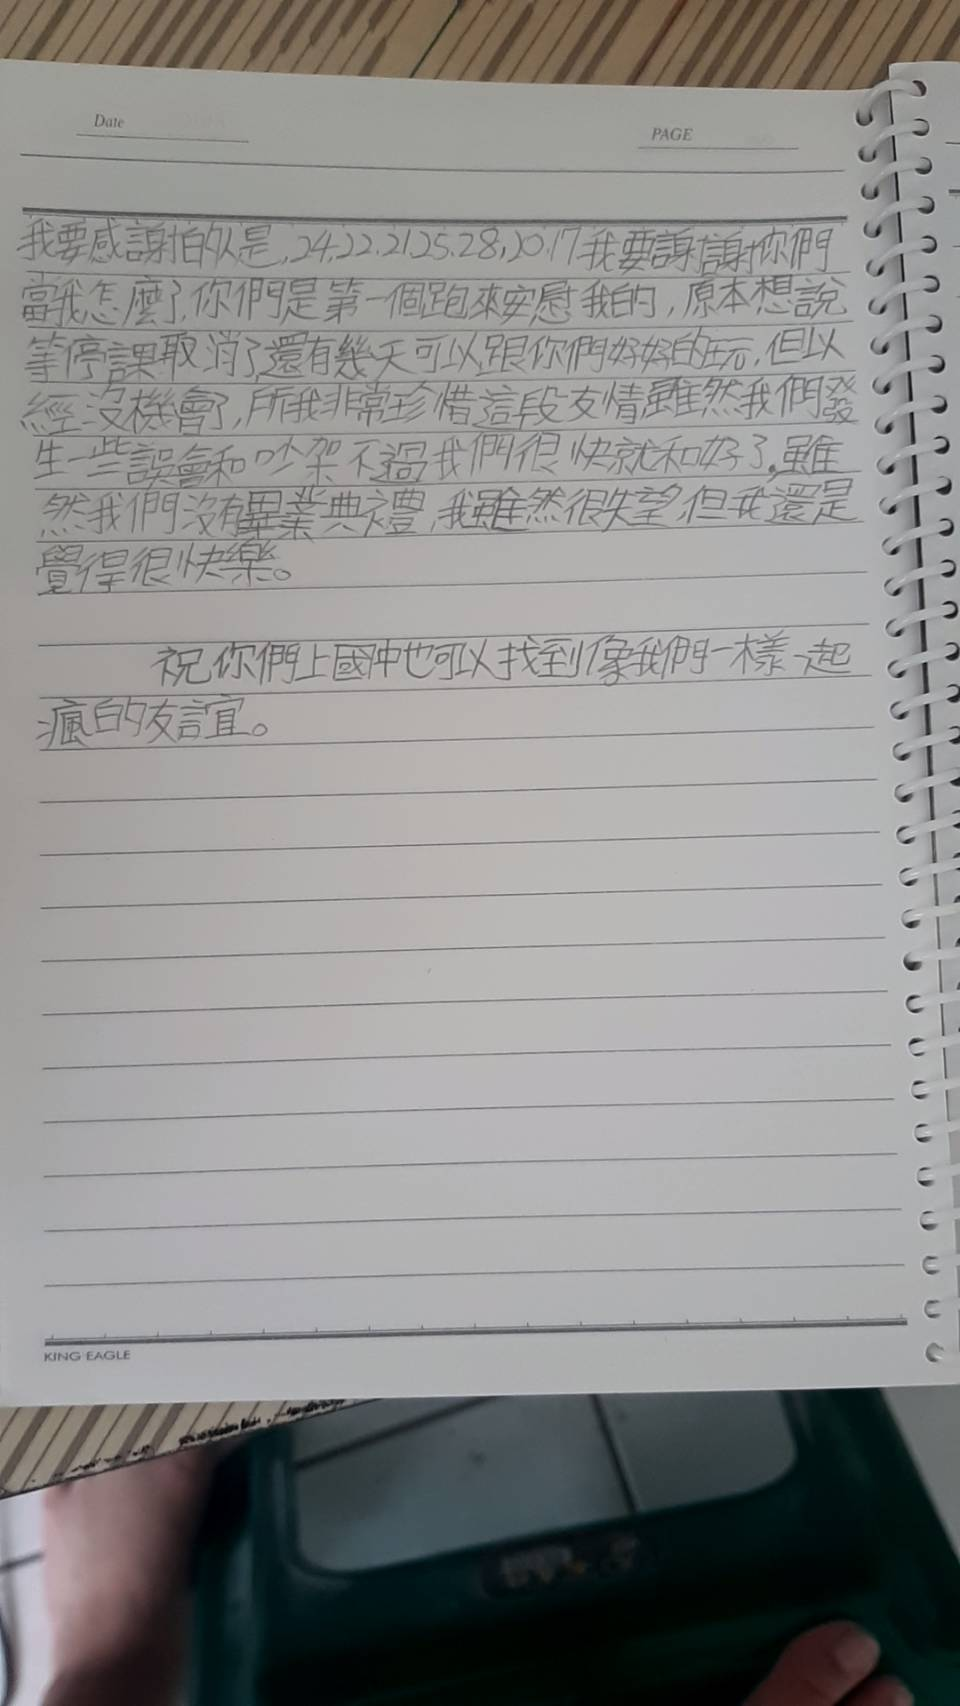 Date
PAGE
我要感謝的人是,24.22.21.25.28,20.17我要謝謝你們
當我怎麼了,你們是第一個跑來安慰我的,原本想說
等停課取消了還有幾天可以跟你們好好的玩,但以
經沒機會了,所我非常珍惜這段友情雖然我們發
生一些誤會和吵架不過我們很快就和好了,雖
然我們沒有畢業典禮,我雖然很失望,但我還是
覺得很快樂。
祝你們上國中也可以找到像我們一樣一起
瘋的友誼。
KING EAGLE